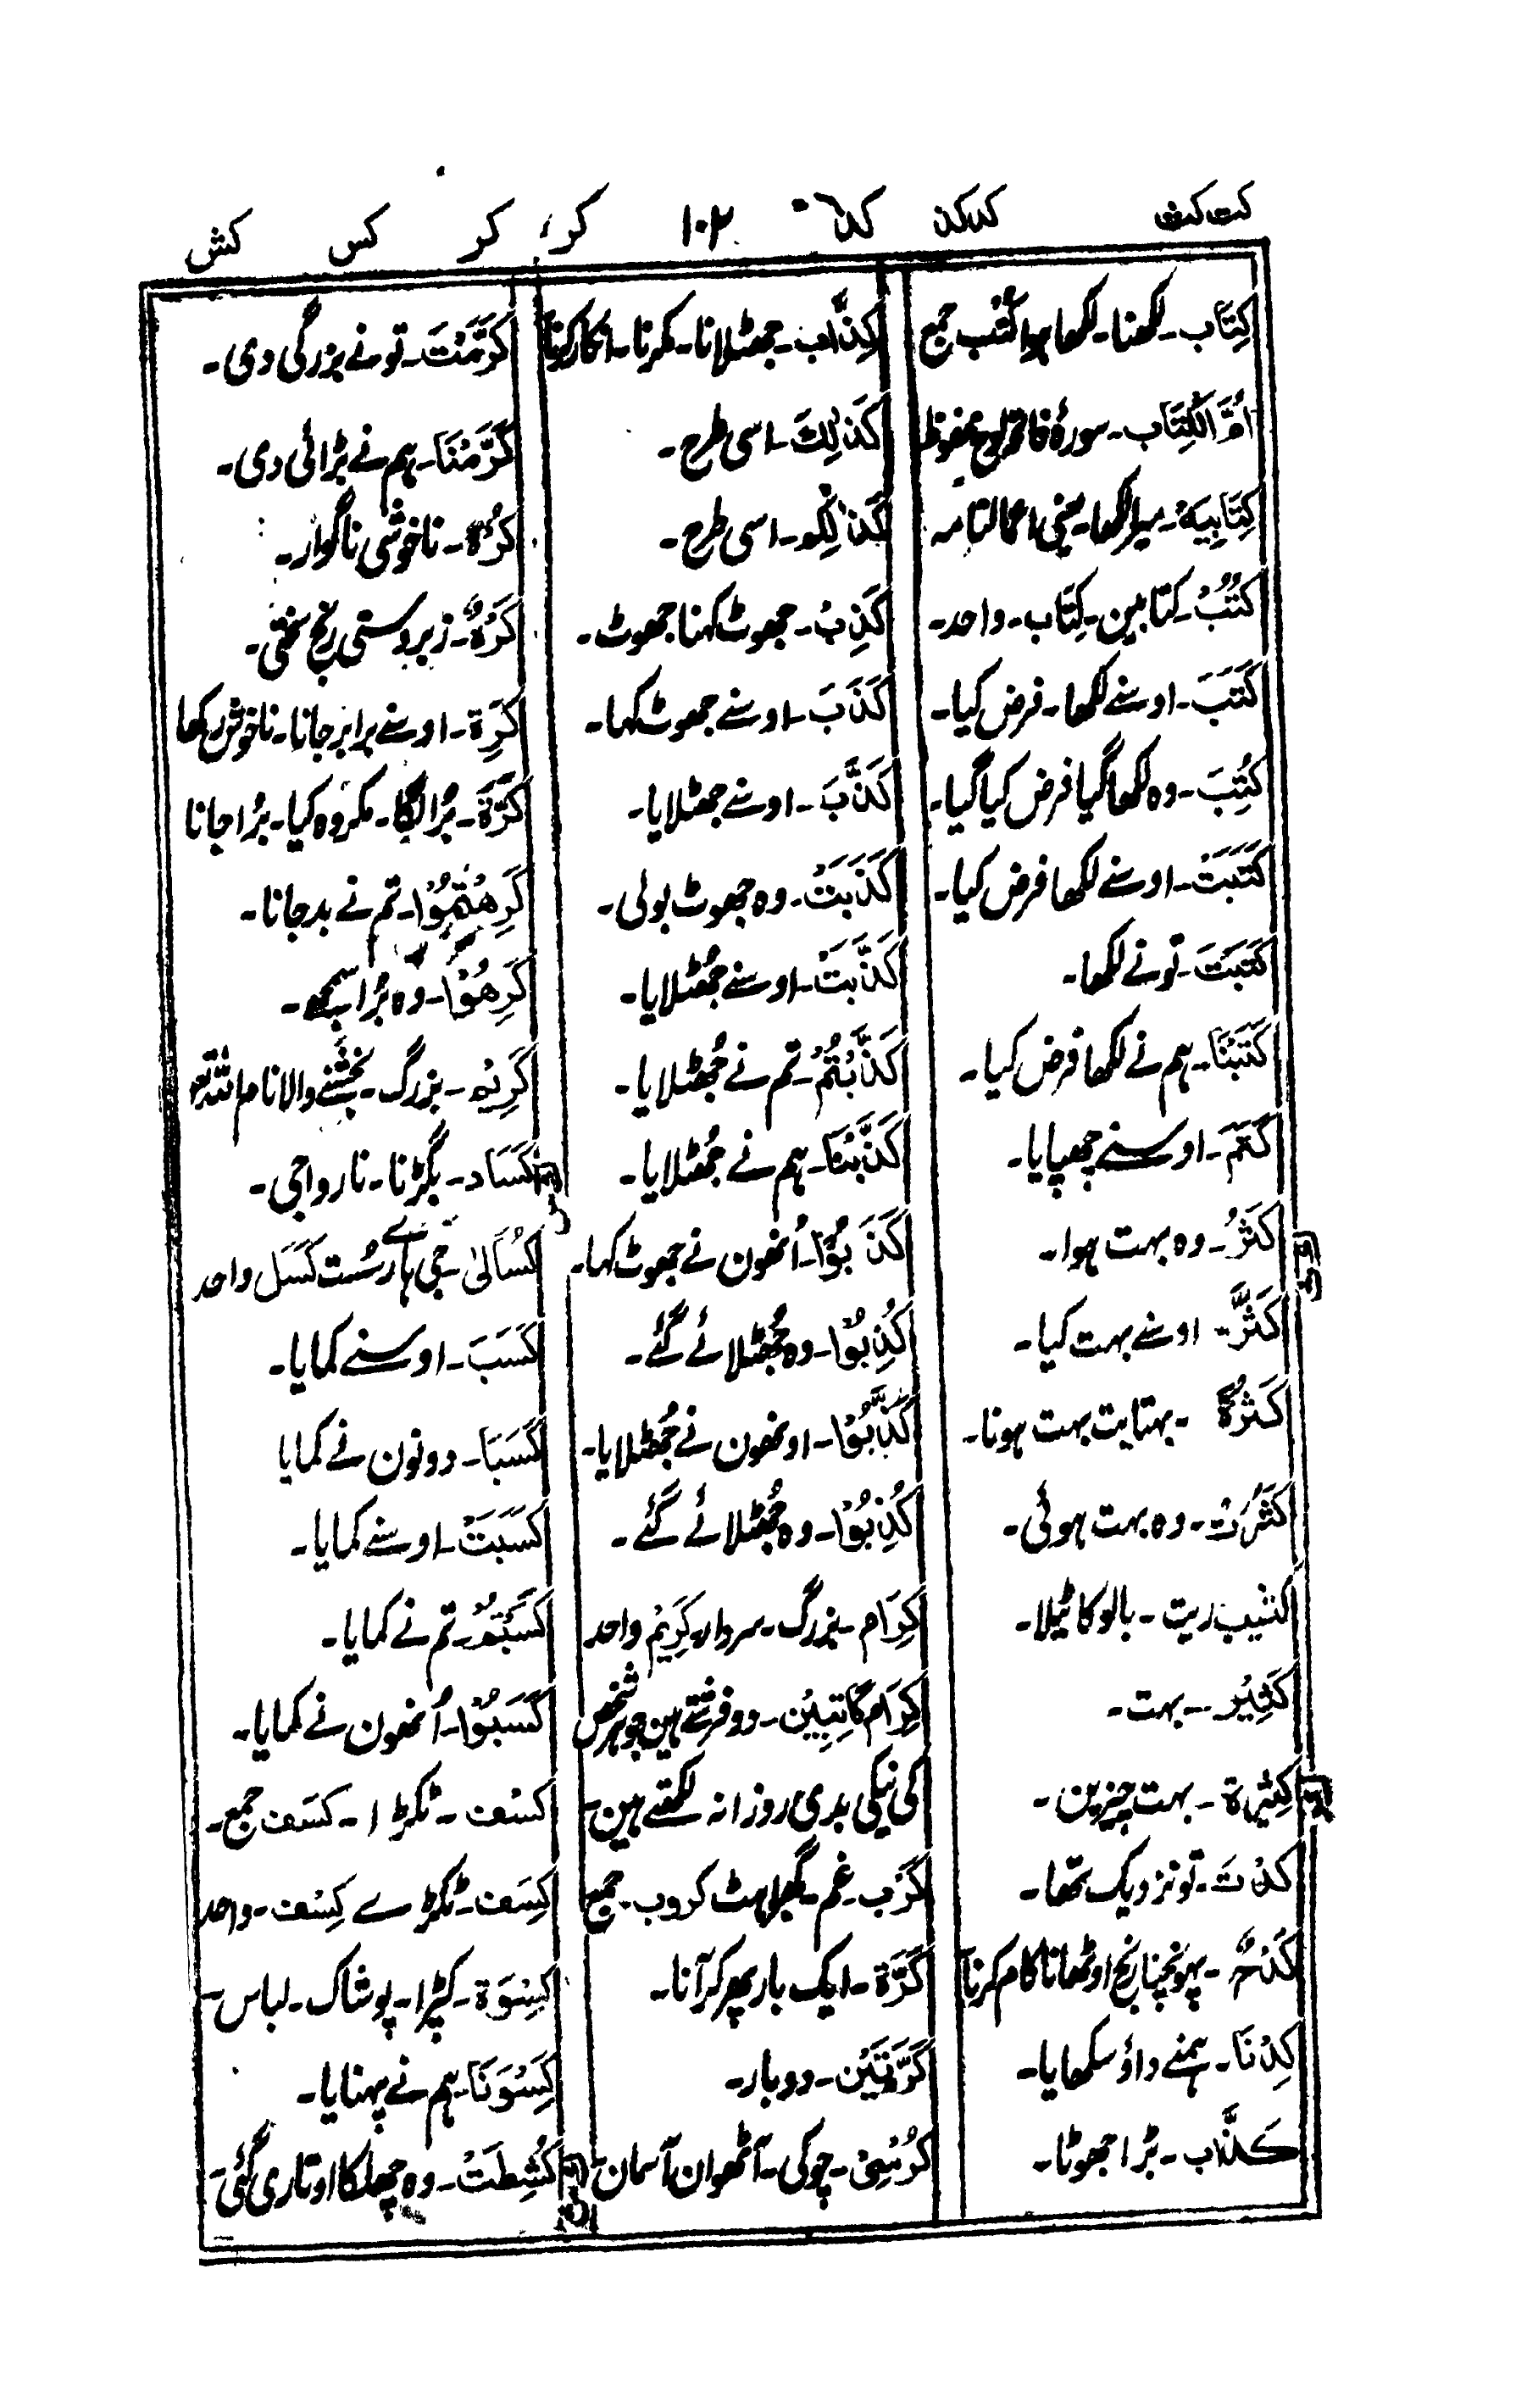 کت کث کد کذ کذ ۱۰۲ کر کر کس کش
کِتَاب۔ لکھنا۔ لکھا ہوا کُتُب جمع
اُمُّ الْکِتَاب۔ سورۂ فاتحہ لوح محفوظ
کِتَابِیَہْ۔ میرا لکھا۔ یعنی اعمالنامہ
کُتُبٌ۔ کتابین۔ کِتَاب۔ واحد۔
کَتَبَ۔ اوسنے لکھا۔ فرض کیا۔
کُتِبَ۔ وہ لکھا گیا فرض کیا گیا۔
کَتَبَتْ۔ اوسنے لکھا فرض کیا۔
کَتَبْتَ۔ تونے لکھا۔
کَتَبْنَا۔ ہم نے لکھا فرض کیا۔
کَتَمَ۔ اوسنے چھپایا۔
کَثُرَ۔ وہ بہت ہوا۔
کَثَّرَ۔ اوسنے بہت کیا۔
کَثْرَۃٌ ۔ بہتایت بہت ہونا۔
کَثُرَتْ۔ وہ بہت ہوئی۔
کَثِیب ریت ۔ بالو کا ٹیلا۔
کَثِیْر ۔۔ بہت۔
کَثِیْرۃ ۔ بہت چیزین۔
کِدْتَ۔ تو نزدیک تھا۔
کَدْحٌ ۔ پہونچنا رنج اوٹھانا کام کرنا
کِدْنَا۔ ہمنے داؤ سکھایا۔
کَذَّاب ۔ بڑا جھوٹا۔
کِذَّاب۔ جھٹلانا۔ مکرنا۔ انکار کرنا
کَذٰلِکَ۔ اسی طرح۔
کَذٰلِکُم۔ اسی طرح۔
کَذِبْ۔ جھوٹ کہنا جھوٹ۔
کَذَبَ۔ اوسنے جھوٹ کہا۔
کَذَّبَ۔ اوسنے جھٹلایا۔
کَذَبَتْ۔ وہ جھوٹ بولی۔
کَذَّبَتْ۔ اوسنے جُھٹلایا۔
کَذَّبْتُمْ۔ تم نے جُھٹلایا۔
کَذَّبْنَا۔ ہم نے جُھٹلایا۔
کَذَبُوْا۔ اُنھون نے جھوٹ کہا۔
کُذِبُوْا۔ وہ جُھٹلائے گئے۔
کَذَّبُوْا۔ اونھون نے جُھٹلایا۔
کُذِبُوْا۔ وہ جُھٹلائے گئے۔
کِرَام۔ بزرگ۔ سردار۔ کَرِیْم واحد
کِرَام کَاتِبِیْن۔ دو فرشتے ہین جو ہر شخص
کی نیکی بدی روزانہ لکھتے ہین۔
کَرْب۔ غم۔ گھبراہٹ کروب۔ جمع
کَرَّۃ۔ ایک بار پھر کر آنا۔
کَرَّتَیْن۔ دوبار۔
کُرْسِیّ۔ چوکی۔ آٹھوان آسمان۔
کَرَّمْتَ۔ تونے بزرگی دی۔
کَرَّمْنَا۔ ہم نے بڑائی دی۔
کُرْہٌ۔ ناخوشی ناگوار۔
کَرْہٌ۔ زبردستی رنج سختی۔
کَرِہَ۔ اوسنے برا بر جانا۔ ناخوش رکھا
کَرَّہَ۔ بُرا لگا۔ مکروہ کیا۔ بُرا جانا
کَرِھْتُمُوْا۔ تم نے بد جانا۔
کَرِھُوْا۔ وہ بُرا سمجھے۔
کَرِیْم۔ بزرگ۔ بخشنے والا نام اللہ
کَسَاد۔ بگڑنا۔ نارواجی۔
کُسَالیٰ۔ جی ہارے سُست کَسَل واحد
کَسَبَ۔ اوسنے کمایا۔
کَسَبَا۔ دونون نے کمایا
کَسَبَتْ۔ اوسنے کمایا۔
کَسَبْتُمْ۔ تم نے کمایا۔
کَسَبُوْا۔ اُنھون نے کمایا۔
کِسْف ۔ ٹکڑا ۔ کِسَف جمع۔
کِسَف۔ ٹکڑے کِسْف۔ واحد
کِسْوَۃ۔ کپڑا۔ پوشاک۔ لباس۔
کَسَوْنَا۔ ہم نے پہنایا۔
کُشِطَتْ۔ وہ چھلکا اوتاری گئی۔